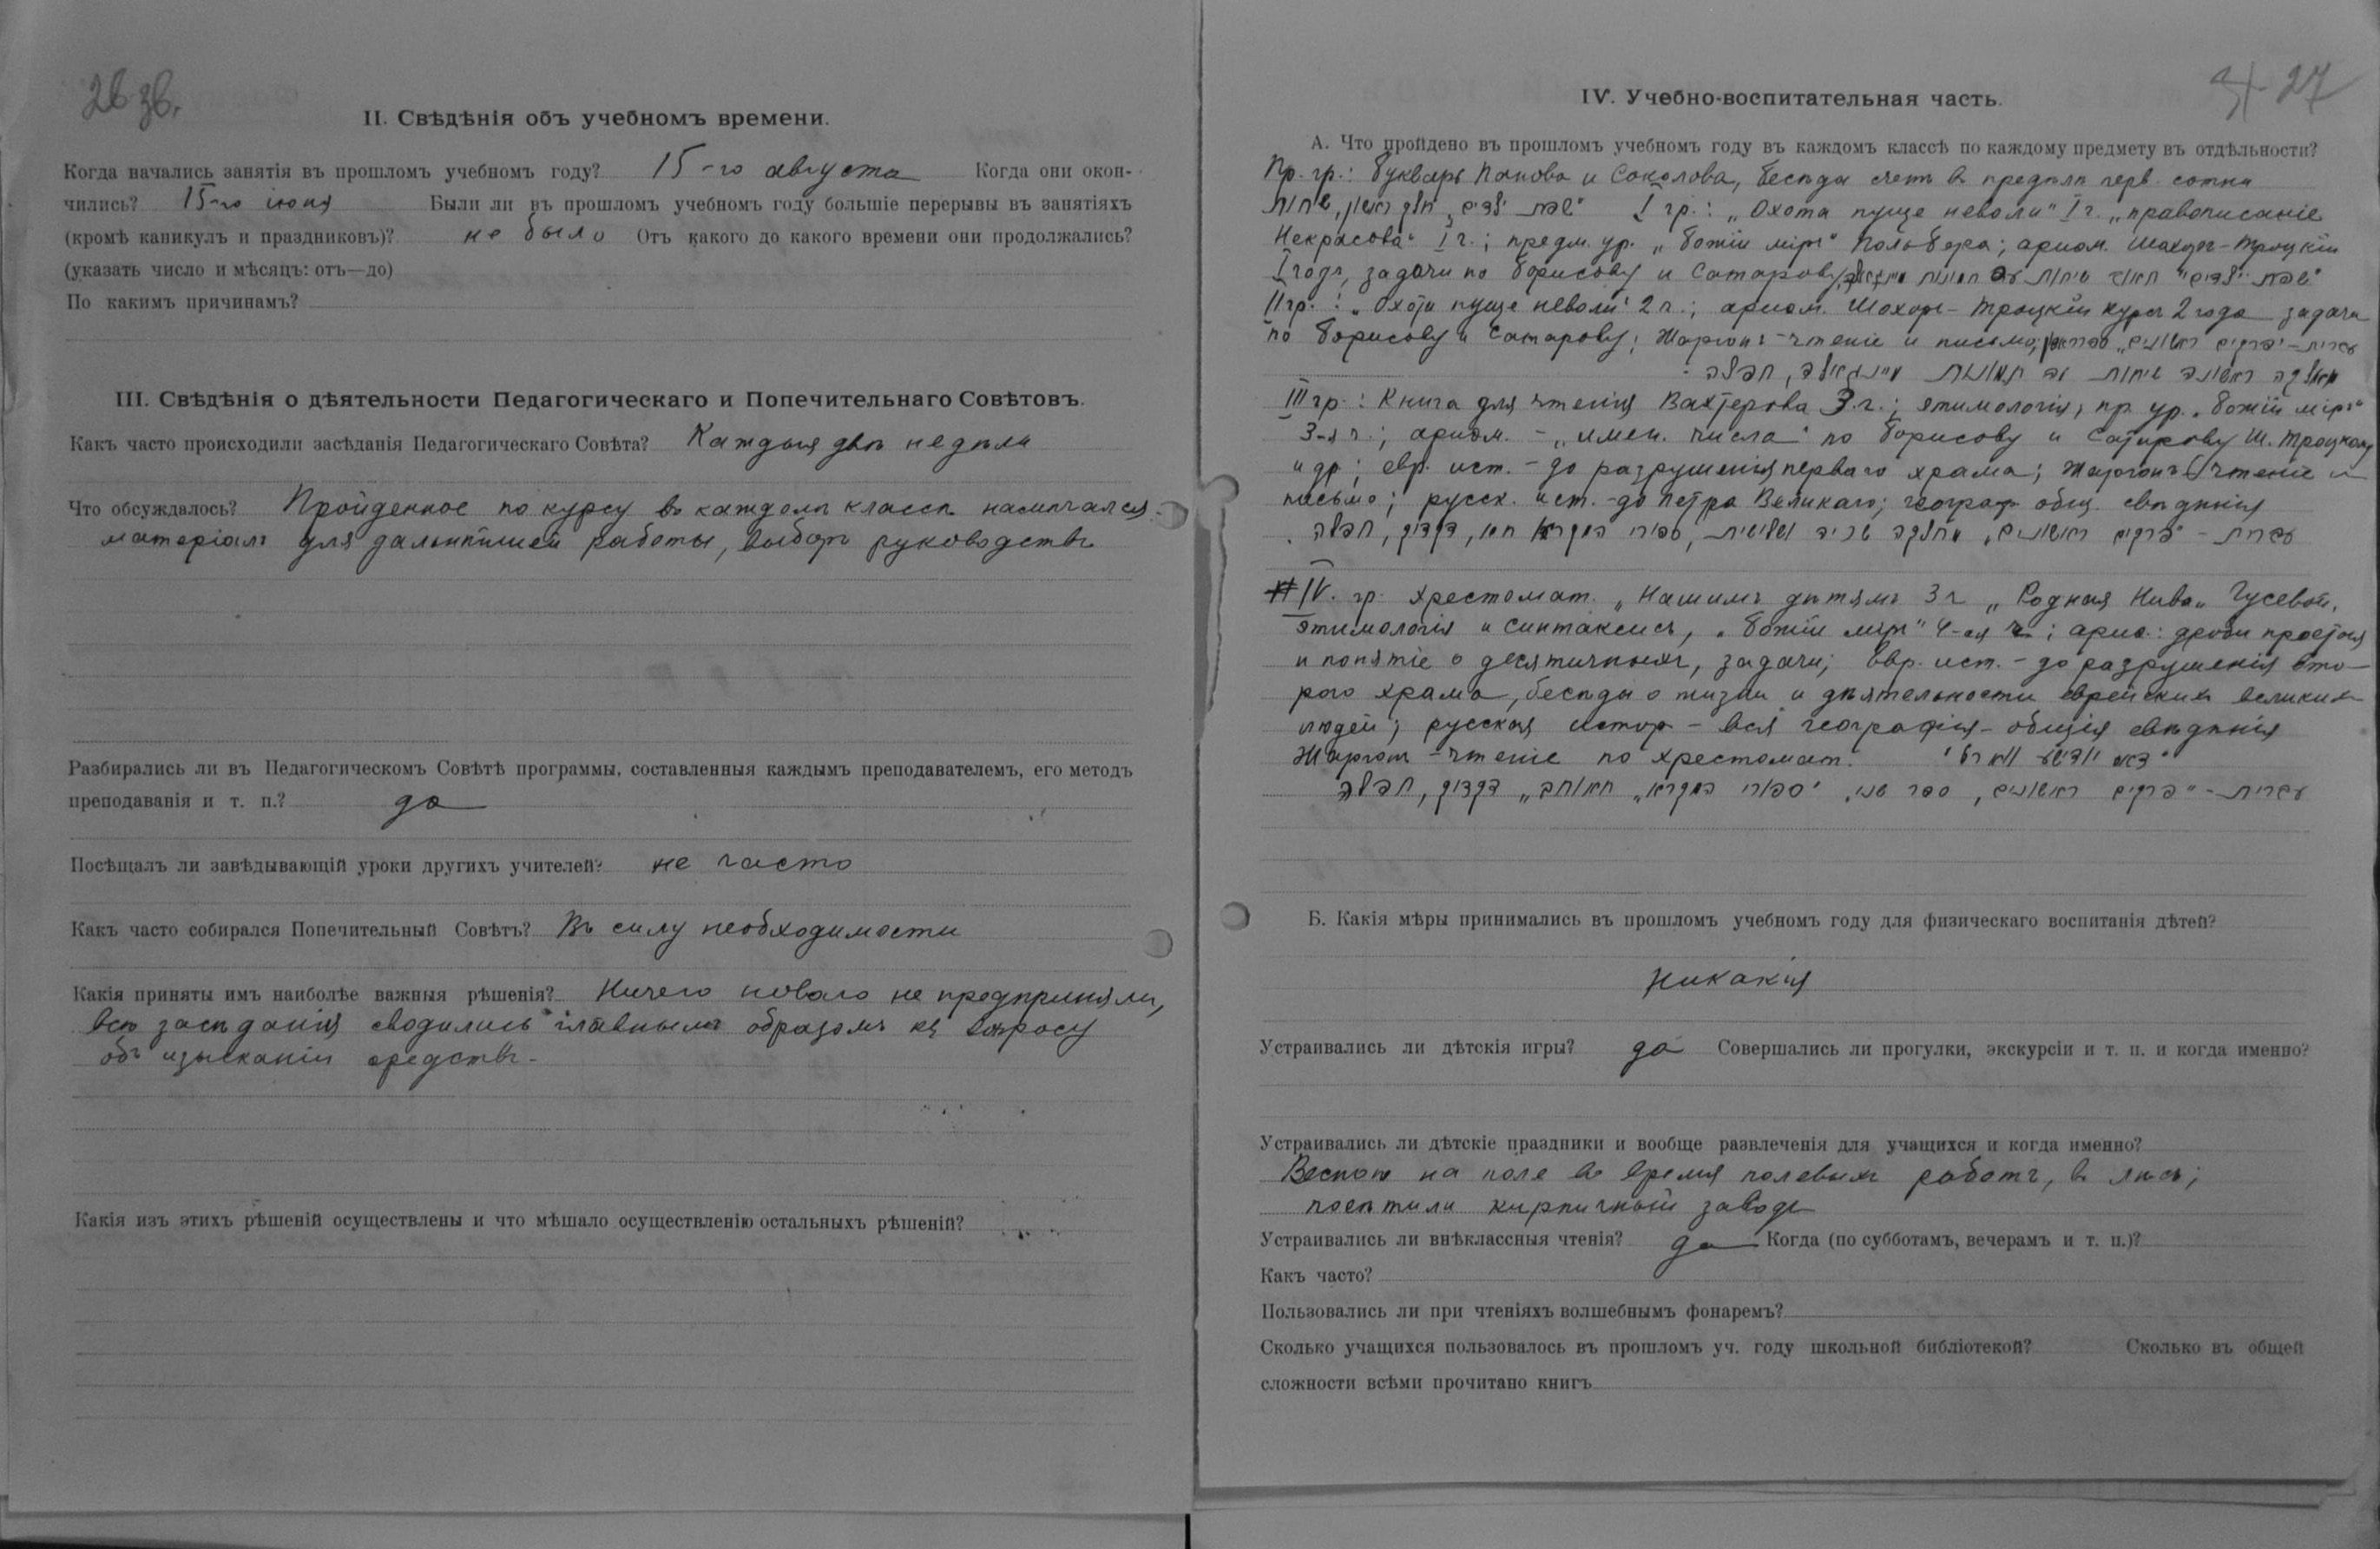 26 зв.
II. Свѣдѣнія объ учебномъ времени.
Когда начались занятія въ прошломъ учебномъ году? 15-го августа Когда они окон-
чились? 15-го іюня Были ли въ прошломъ учебномъ году большіе перерывы въ занятіяхъ
(кромѣ каникулъ и праздниковъ)? не было Отъ какого до какого времени они продолжались?
(указать число и мѣсяцъ: отъ—до)
По какимъ причинамъ?
III. Свѣдѣнія о дѣятельности Педагогическаго и Попечительнаго Совѣтовъ.
Какъ часто происходили засѣданія Педагогическаго Совѣта? Каждыя двѣ недѣли
Что обсуждалось? Пройденное по курсу въ каждомъ классѣ намѣчался
матеріалъ для дальнѣйшей работы, выборъ руководствъ
Разбирались ли въ Педагогическомъ Совѣтѣ программы, составленныя каждымъ преподавателемъ, его методъ
преподаванія и т. п.? да
Посѣщалъ ли завѣдывающій уроки другихъ учителей? не часто
Какъ часто собирался Попечительный Совѣтъ? Въ силу необходимости
Какія приняты имъ наиболѣе важныя рѣшенія? Ничего новаго не предприняли,
всѣ засѣданія сводились главнымъ образомъ къ вопросу
объ изысканіи средствъ-
Какія изъ этихъ рѣшеній осуществлены и что мѣшало осуществленію остальныхъ рѣшеній?
27
IV. Учебно-воспитательная часть.
А. Что пройдено въ прошломъ учебномъ году въ каждомъ классѣ по каждому предмету въ отдѣльности?
Пр. гр.: Букварь Попова и Соколова, бесѣды счетъ въ предѣлѣ перв. сотни
I гр.: „Охота пуще неволи" I ч. „правописаніе
Некрасова" I ч.; предм. ур. „Божій міръ" Польвера; ариѳм. Шохоръ-Троцкій
I годъ, задачи по Борисову и Сатарову,
II гр.: „Охота пуще неволи" 2 ч.; ариѳм. Шохоръ-Троцкій курсъ 2 года задачи
по Борисову и Сатарову; Жаргонъ-чтеніе и письмо; עברית - "פרקים ראשונים"
III гр.: Книга для чтенія Вахтерова 3 ч.; этимологія, пр. ур. „Божій міръ"
3-я ч.; ариѳм. - „имен. числа" по Борисову и Сатарову Ш. Троцкому
и др; евр. ист. - до разрушенія перваго храма; Жаргонъ чтеніе и
письмо; русск. ист.-до Петра Великаго; географ общ. свѣдѣнія
עברית - "פרקים ראשונים, מחלקה שניה ושלישית, ספורי המקרא חומש, דקדוק, תפלה.
IV. гр. хрестомат. „Нашимъ дѣтямъ 3 ч „Родная Нива„ Гусевой,
этимологія и синтаксисъ, „Божій міръ" 4-ая ч.; ариѳ.: дроби простыя
и понятіе о десятичныхъ, задачи; Евр. ист. - до разрушенія вто-
рого храма, бесѣды о жизни и дѣятельности еврейскихъ великихъ
людей; русская истор - вся географія - общія свѣдѣнія
Жаргонъ - чтеніе по хрестомат. "דאס יידישע ווארט"
עברית - "פרקים ראשונים, ספר שני, "ספורי המקרא" דקדוק, תפלה
Б. Какія мѣры принимались въ прошломъ учебномъ году для физическаго воспитанія дѣтей?
Никакія
Устраивались ли дѣтскія игры? да Совершались ли прогулки, экскурсіи и т. п. и когда именно?
Устраивались ли дѣтскіе праздники и вообще развлеченія для учащихся и когда именно?
Весною на поле во время полевыхъ работъ, въ лѣсъ;
посѣтили кирпичный заводъ
Устраивались ли внѣклассныя чтенія? да Когда (по субботамъ, вечерамъ и т. п.)?
Какъ часто?
Пользовались ли при чтеніяхъ волшебнымъ фонаремъ?
Сколько учащихся пользовалось въ прошломъ уч. году школьной библіотекой? Сколько въ общей
сложности всѣми прочитано книгъ